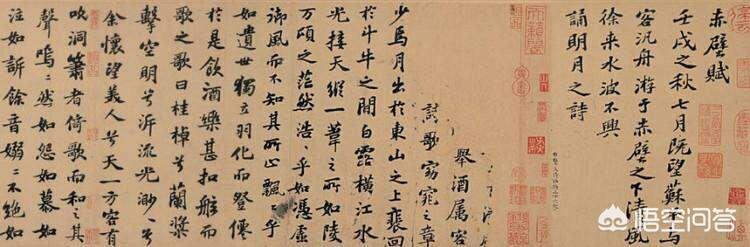 赤壁賦
壬戌之秋七月既望蘇子與
客汎舟游于赤壁之下清風
徐来水波不興
誦明月之詩
舉酒属客
歌窈窕之章
少焉月出於東山之上裴回
於斗牛之間白露橫江水
光接天縱一葦之所如陵
万頃之茫然浩〻乎如憑虛
御風而不知其所止飄〻乎
如遺世獨立羽化而登僊
於是飲酒樂甚扣舷而
歌之歌曰桂棹兮蘭槳
擊空明兮泝流光渺〻兮
余懷望美人兮天一方客有
吹洞簫者倚歌而和之其
聲嗚〻然如怨如慕如
泣如訴餘音嫋〻不絕如
悟空问答